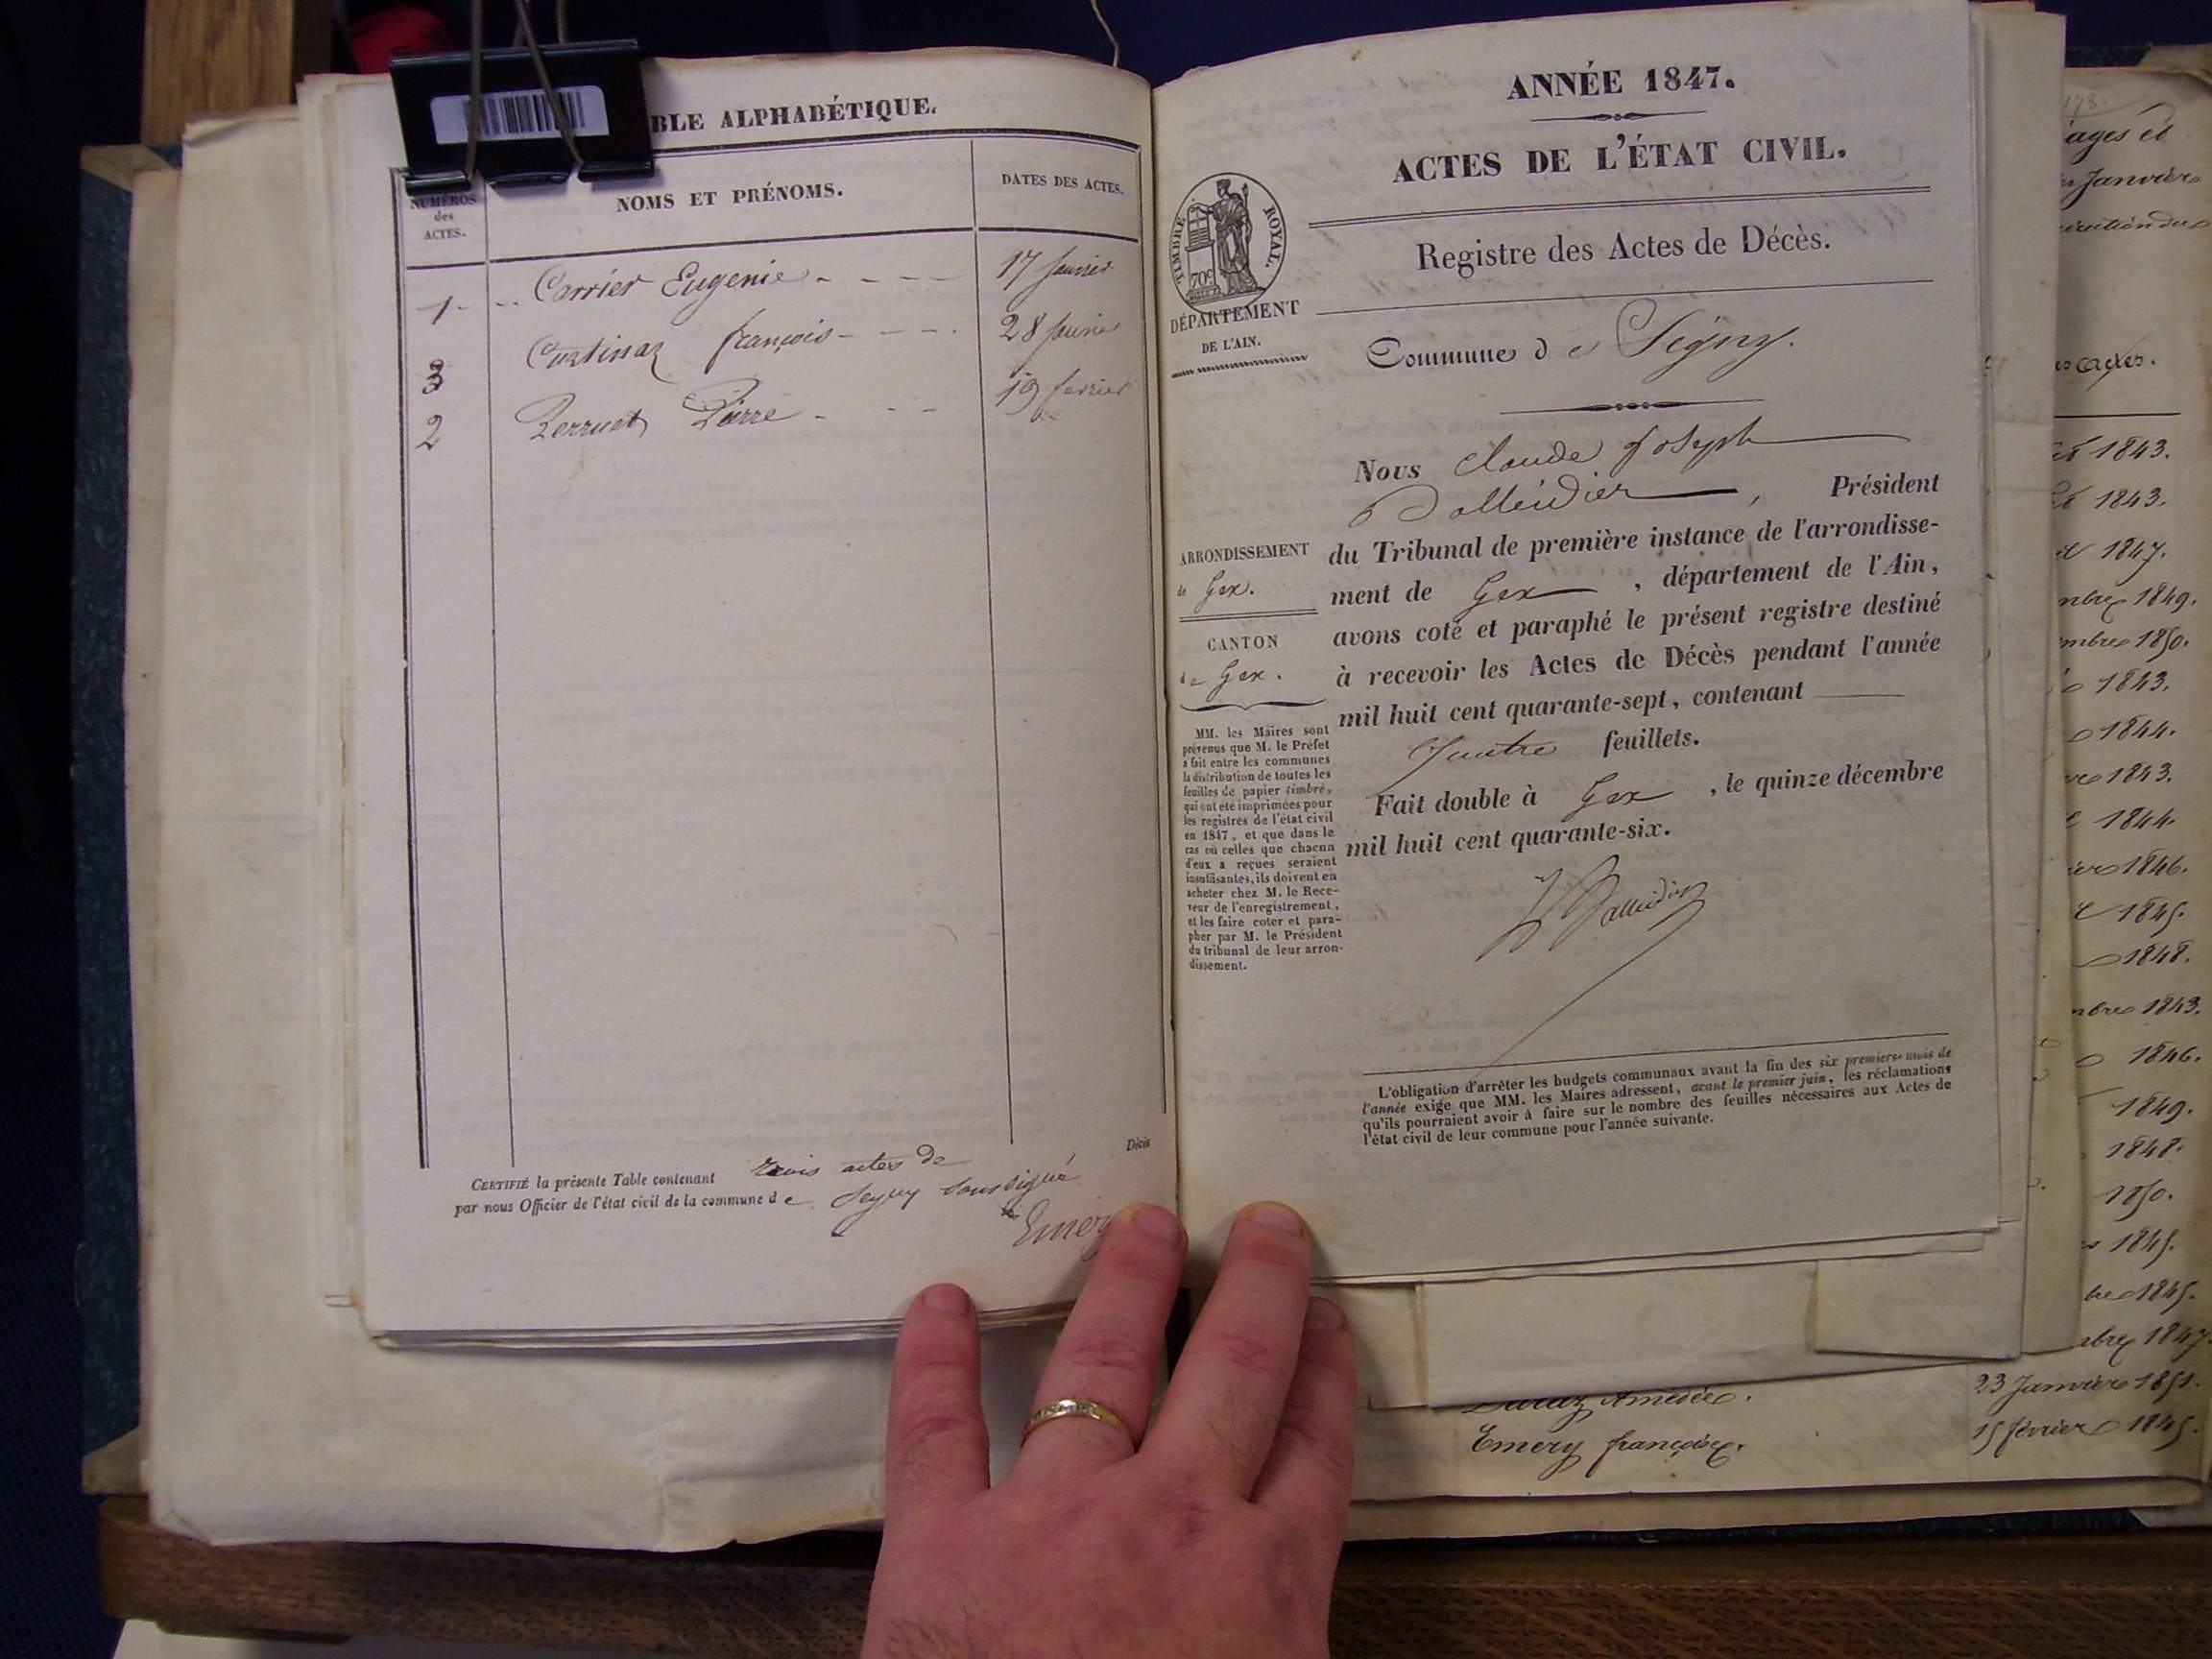 BLE ALPHABÉTIQUE.
NUMÉROS
des
ACTES.
NOMS ET PRÉNOMS.
DATES DES ACTES.
1 Carrier Eugenie 17
3 François 28
2 Perruet Pierre 19 février
Décès
CERTIFIÉ la présente Table contenant trois actes de
par nous Officier de l'état civil de la commune de Segny soussigné
Emery
ANNÉE 1847.
ACTES DE L'ÉTAT CIVIL.
TIMBRE ROYAL.
70c
DÉPARTEMENT
DE L'AIN.
Registre des Actes de Décès.
Commune de Ségny.
ARRONDISSEMENT
de Gex.
CANTON
de Gex.
MM. les Maires sont
prévenus que M. le Préfet
a fait entre les communes
la distribution de toutes les
feuilles de papier timbré,
qui ont été imprimées pour
les registres de l'état civil
en 1847, et que dans le
cas où celles que chacun
d'eux a reçues seraient
insuffisantes, ils doivent en
acheter chez M. le Rece-
veur de l'enregistrement,
et les faire coter et para-
pher par M. le Président
du tribunal de leur arron-
dissement.
Nous Claude Joseph
, Président
du Tribunal de première instance de l'arrondisse-
ment de Gex, département de l'Ain,
avons coté et paraphé le présent registre destiné
à recevoir les Actes de Décès pendant l'année
mil huit cent quarante-sept, contenant
Quatre feuillets.
Fait double à Gex, le quinze décembre
mil huit cent quarante-six.
L'obligation d'arrêter les budgets communaux avant la fin des six premiers mois de
l'année exige que MM. les Maires adressent, avant le premier juin, les réclamations
qu'ils pourraient avoir à faire sur le nombre des feuilles nécessaires aux Actes de
l'état civil de leur commune pour l'année suivante.
ages et
Janvier
actes.
1843.
1843.
1847.
mbre 1849.
mbre 1850.
1843.
1844.
1843.
1844.
1846.
1845.
1848.
mbre 1843.
1846.
1849.
1848.
1850.
1845.
bre 1845.
mbre 1847.
Amédée. 23 Janvier 1851.
Emery françoise. 15 février 1845.